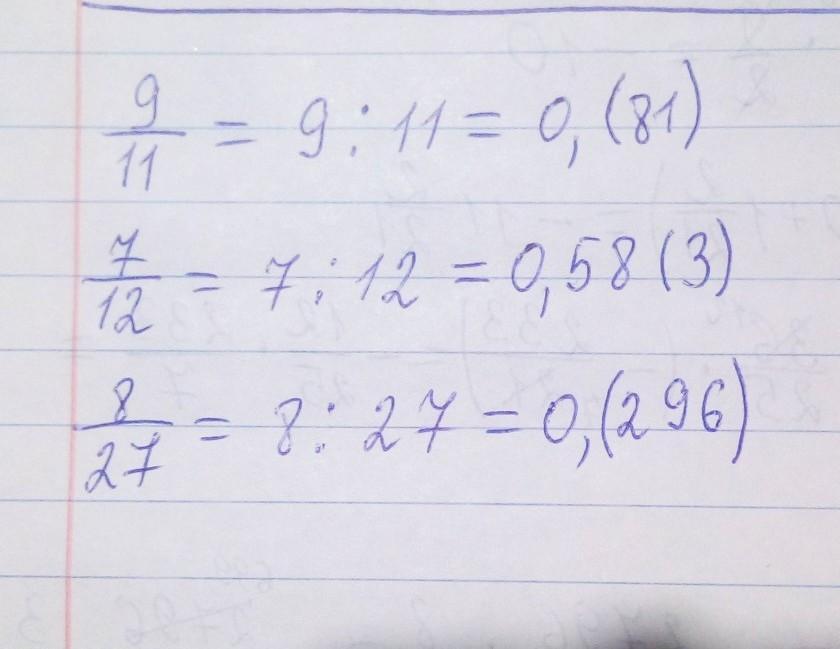 9/11 = 9 : 11 = 0,(81)
7/12 = 7 : 12 = 0,58(3)
8/27 = 8 : 27 = 0,(296)